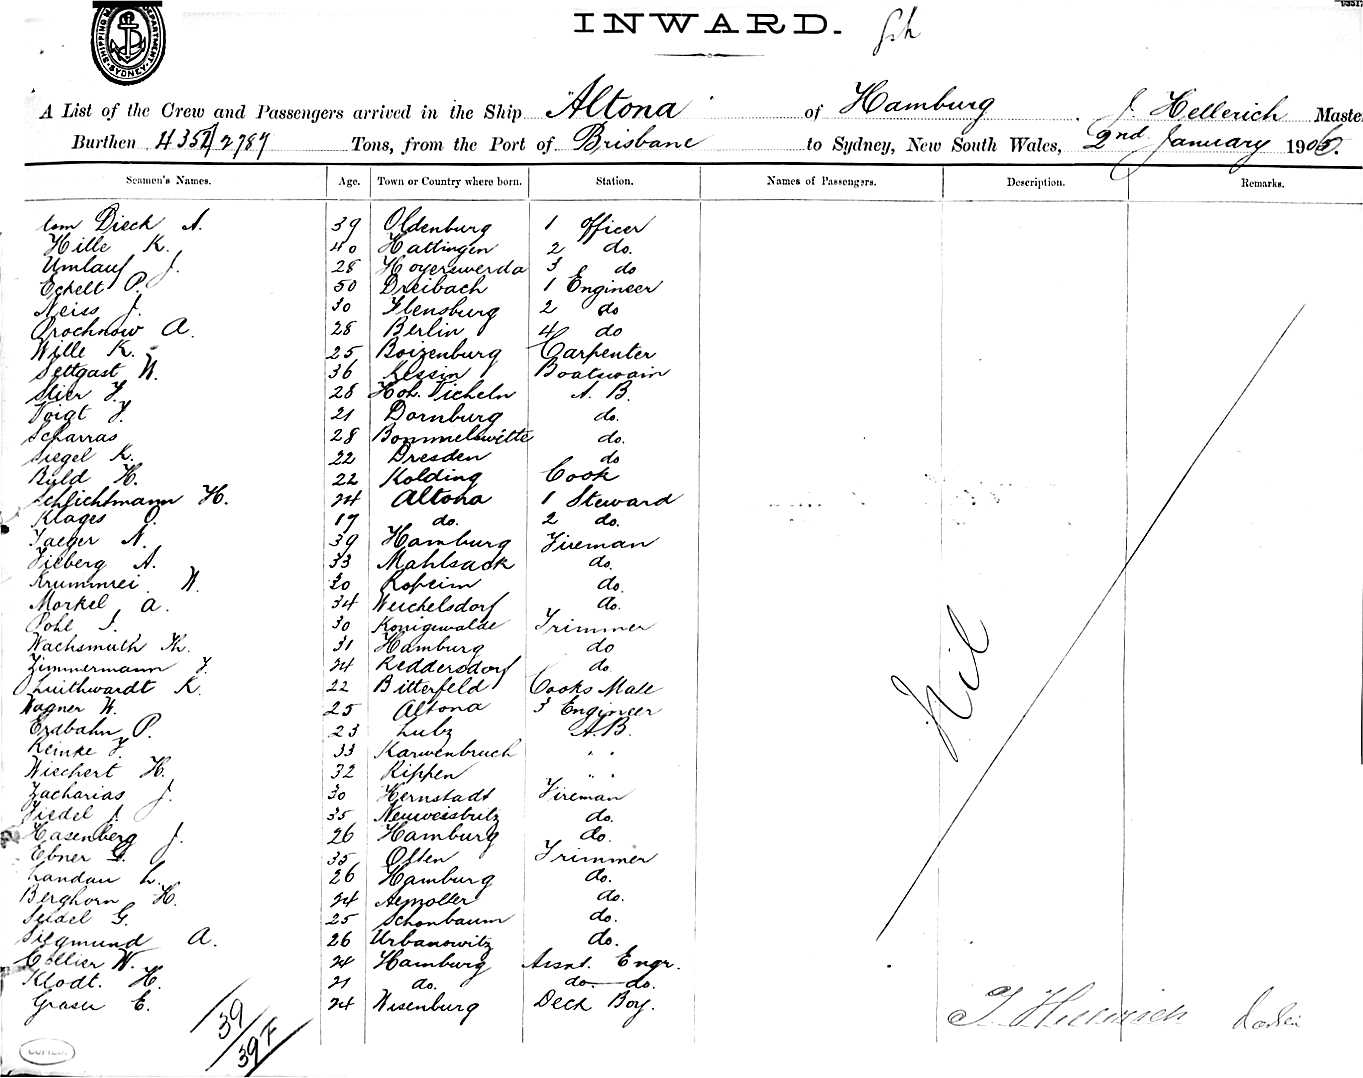 INWARD.
SHIPPING DEPARTMENT SYDNEY
A List of the Crew and Passengers arrived in the Ship "Altona" of Hamburg, J. Hellerich Master
Burthen 4351/2787 Tons, from the Port of Brisbane to Sydney, New South Wales, 2nd January 1906.
Seamen's Names. Age. Town or Country where born. Station. Names of Passengers. Description. Remarks.
tom Dieck A. 39 Oldenburg 1 Officer
Hille K. 40 Hattingen 2 do.
Umlauf J. 28 Hoyerswerda 3 do
Eckelt P. 50 Dreibach 1 Engineer
Neiss J. 30 Flensburg 2 do
Prochnow A. 28 Berlin 4 do
Wille K. 25 Boizenburg Carpenter
Settgast W. 36 Lessin Boatswain
Stier F. 28 Hoh. Vicheln A. B.
Voigt F. 21 Dornburg do.
Scharras 28 Bommelsvitte do.
Siegel K. 22 Dresden do
Buld H. 22 Kolding Cook
Schlichtmann H. 24 Altona 1 Steward
Klages O. 17 do. 2 do.
Jaeger N. 39 Hamburg Fireman
Fieberg A. 33 Mahlsack do.
Krummrei W. 30 Kopeim do.
Morkel A. 34 Weichelsdorf do.
Pohl J. 30 Konigswalde Trimmer
Wachsmuth Th. 31 Hamburg do
Zimmermann F. 24 Reddersdorf do.
Luithwardt K. 22 Bitterfeld Cooks Mate
Wagner W. 25 Altona 3 Engineer
Erdbahn P. 23 Lubz A.B.
Reinke F. 33 Karwenbruch " "
Wiechert H. 32 Kippen " "
Zacharias J. 30 Hernstadt Fireman
Fiedel J. 35 Neuweistritz do.
Hasenberg J. 26 Hamburg do.
Ebner G. 35 Often Trimmer
Landau L. 26 Hamburg do.
Berghorn H. 24 do.
Seidel G. 25 Schonbaum do.
Siegmund A. 26 Urbanowitz do.
Collier W. 24 Hamburg Assnt. Engr.
Klodt. H. 21 do. do do.
Graser E. 24 Wisenburg Deck Boy.
Nil
39
39 F
J. Hellerich